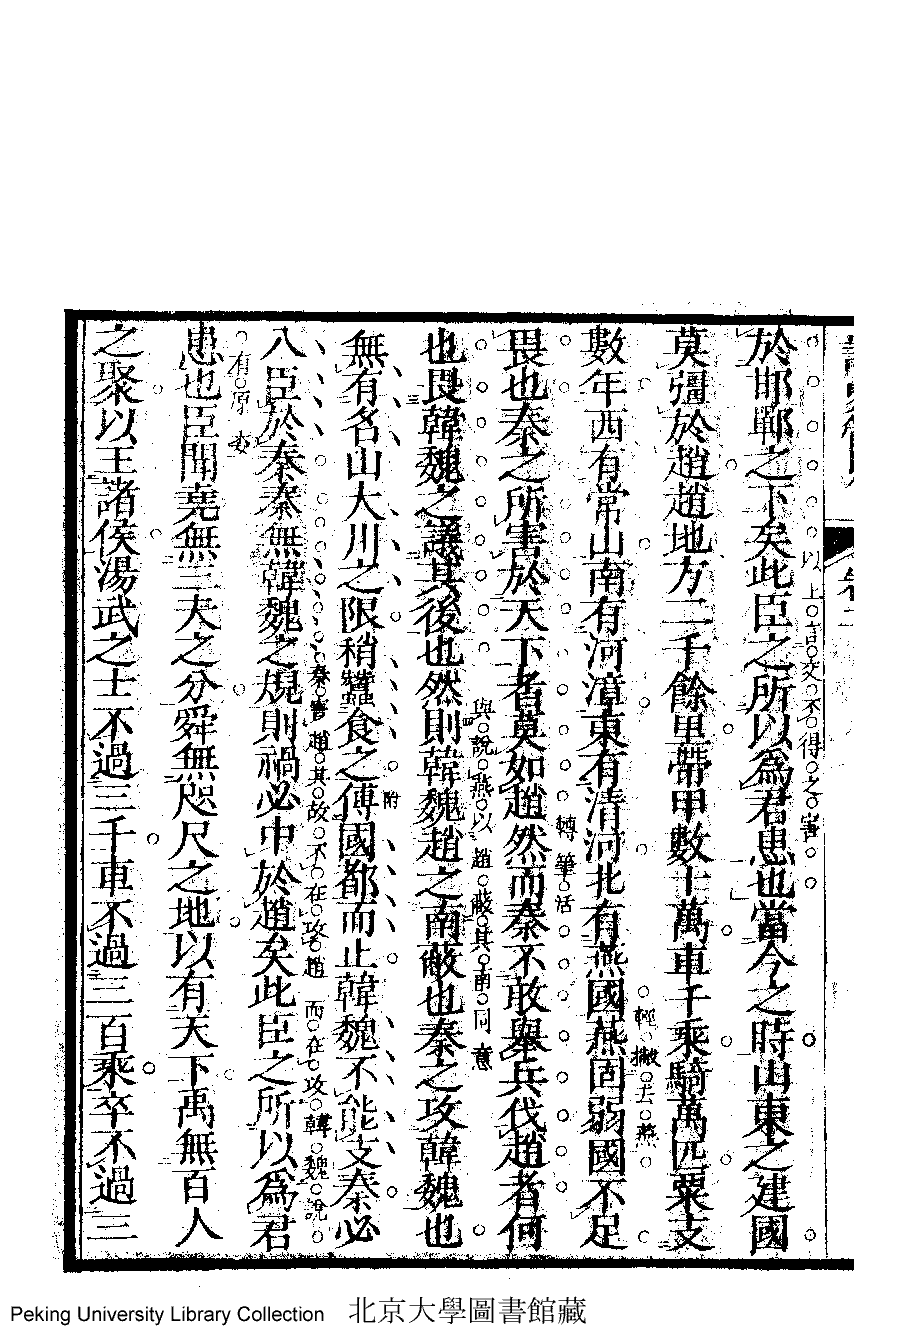 於邯鄲之下矣此臣之所以為君患也當今之時山東之建國
以上言交不得之害
莫彊於趙趙地方二千餘里帶甲數十萬車千乘騎萬匹粟支
數年西有常山南有河漳東有清河北有燕國燕固弱國不足
輕撇去燕
畏也秦之所害於天下者莫如趙然而秦不敢舉兵伐趙者何
轉筆活
也畏韓魏之議其後也然則韓魏趙之南蔽也秦之攻韓魏也
與說燕以趙蔽其南同意
無有名山大川之限稍蠶食之傅國都而止韓魏不能支秦必
附
入臣於秦秦無韓魏之規則禍必中於趙矣此臣之所以為君
秦害趙其故不在攻趙而在攻韓魏說
有原委
患也臣聞堯無三夫之分舜無咫尺之地以有天下禹無百人
之聚以王諸侯湯武之士不過三千車不過三百乘卒不過三
Peking University Library Collection 北京大學圖書館藏